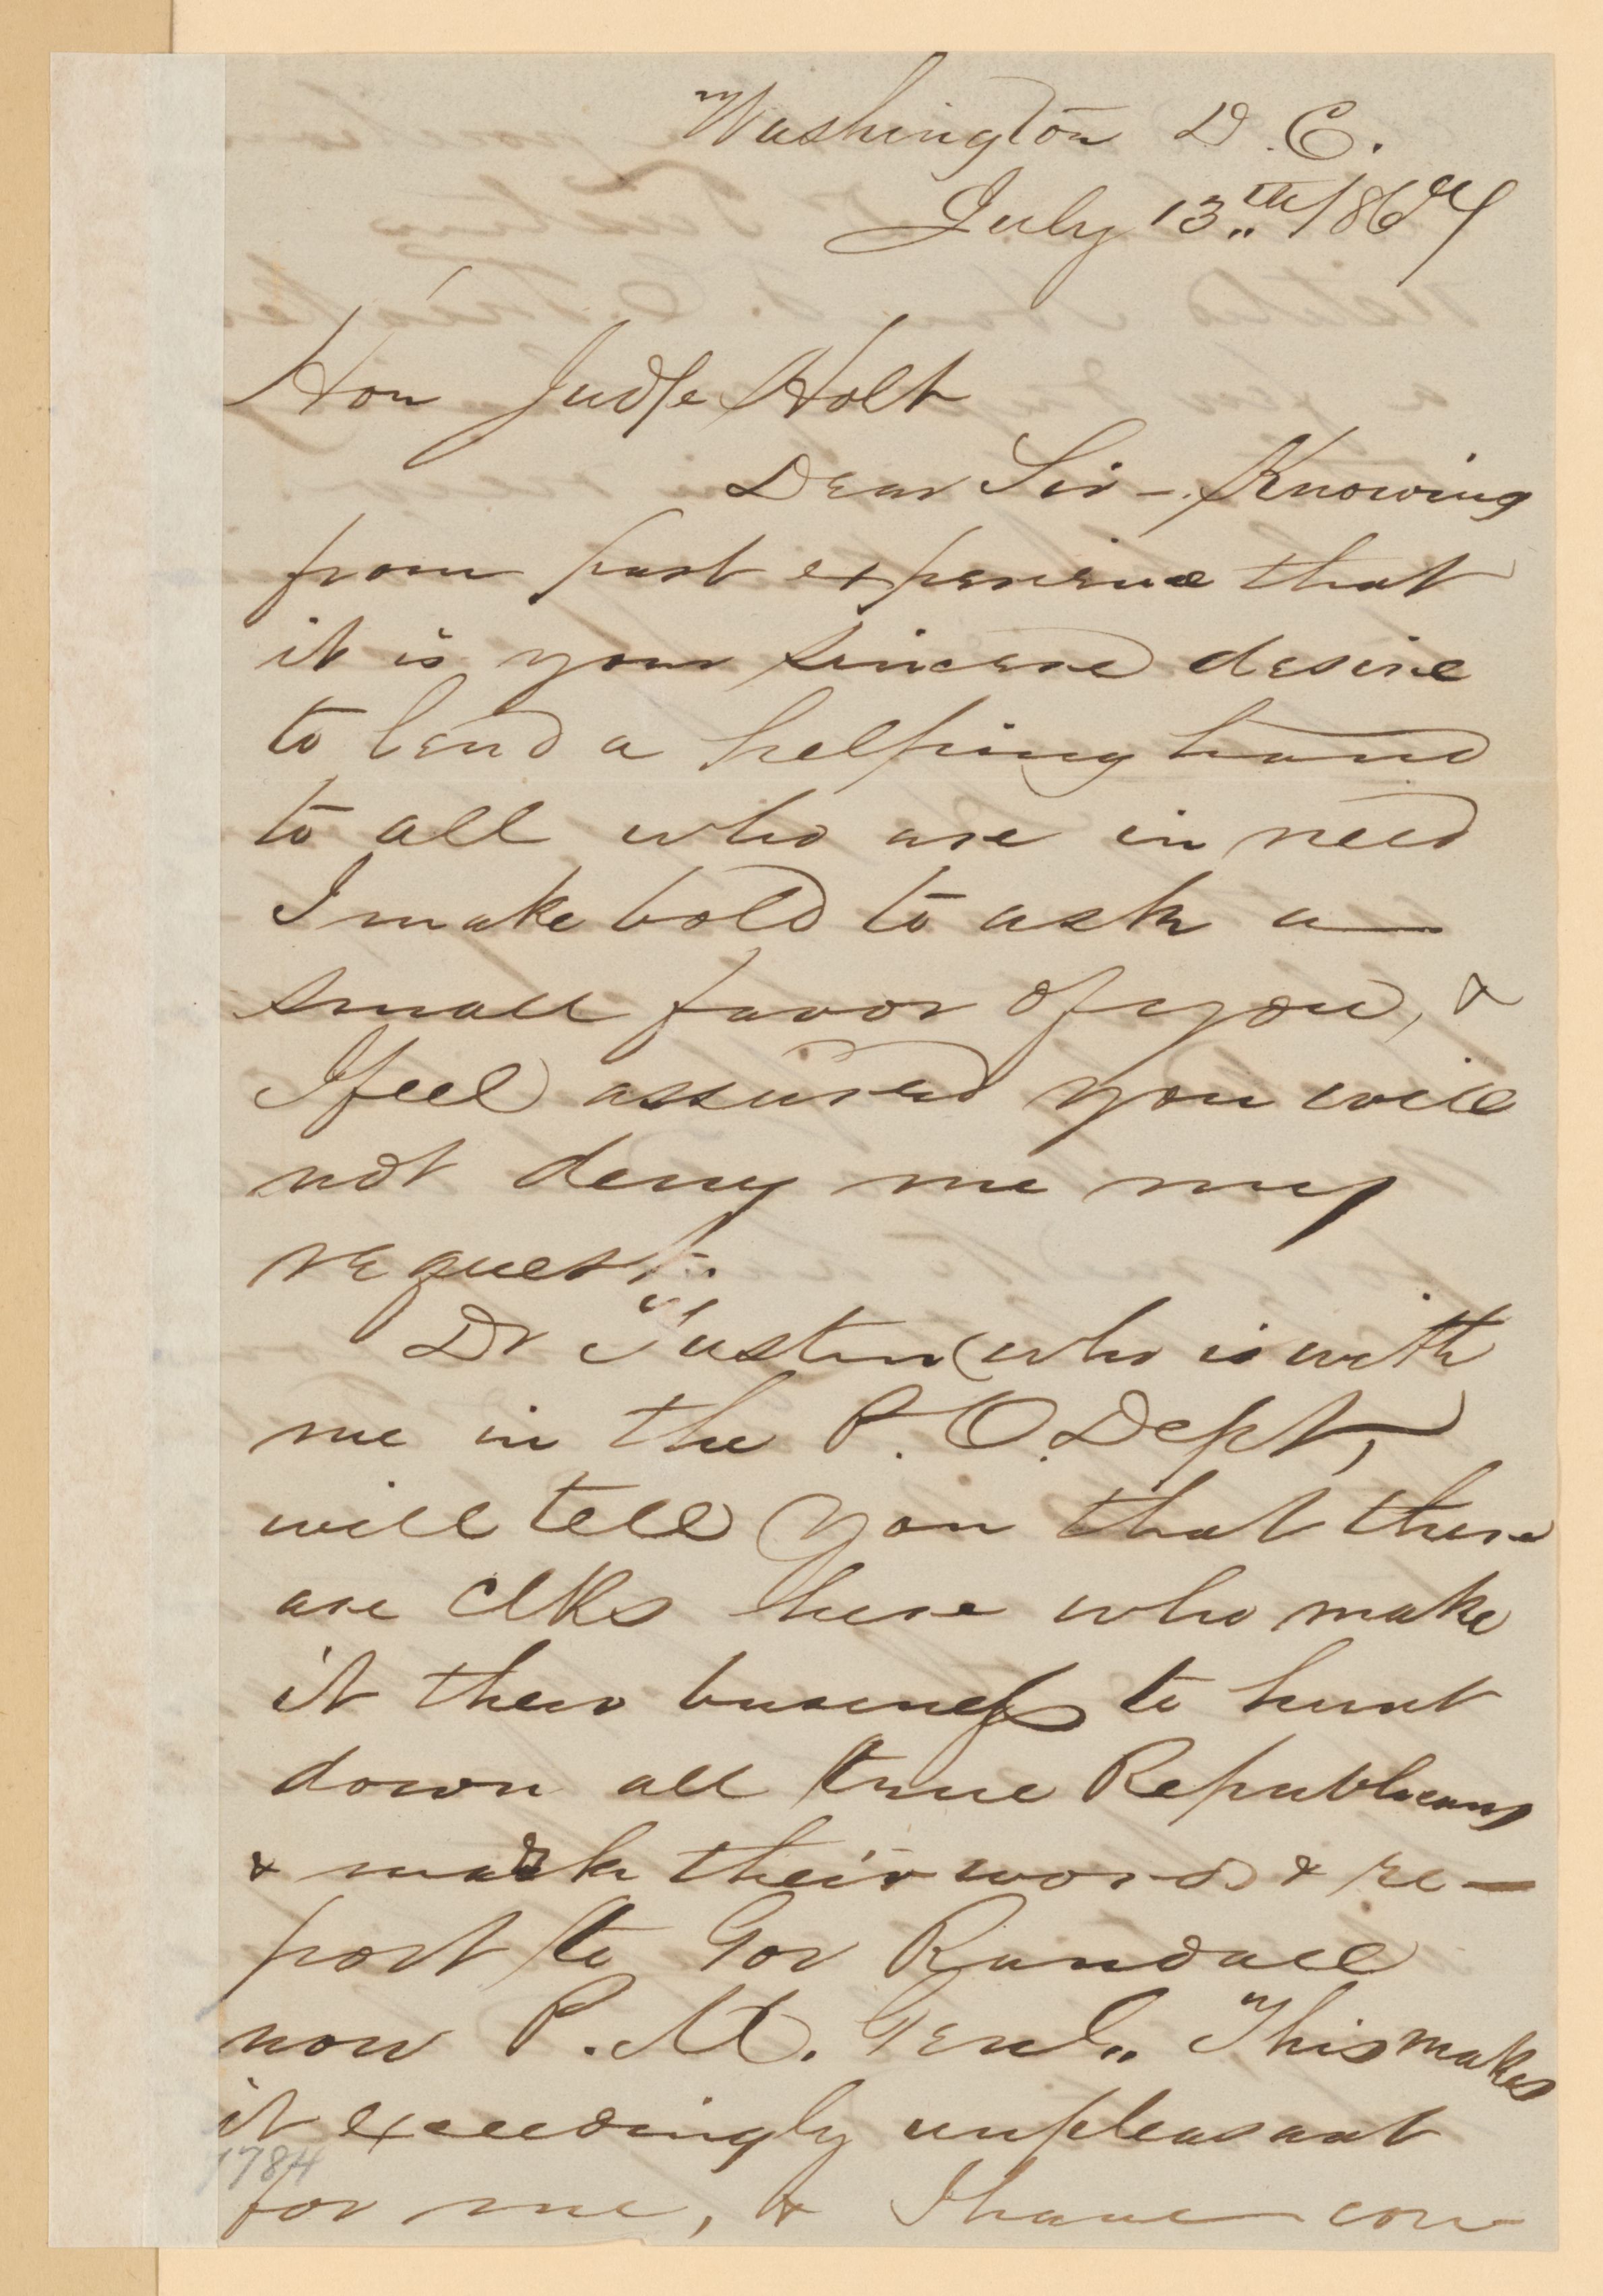 Washington D. C.
July 13th 1867
Hon Judge Holt
Dear Sir - Knowing
from past experience that
it is your sincere desire
to lend a helping hand
to all who are in need
I make bold to ask a
small favor of you, &
I feel assured you will
not deny me my
request.
Dr Tustin (who is with
me in the P. O. Dept,
will tell you that there
are Clks here who make
it their business to hunt
down all true Republicans
& mark their words & re-
port to Gov Randall
now P. M. Genl. This makes
it exceedingly unpleasant
1784
for me, & I have con